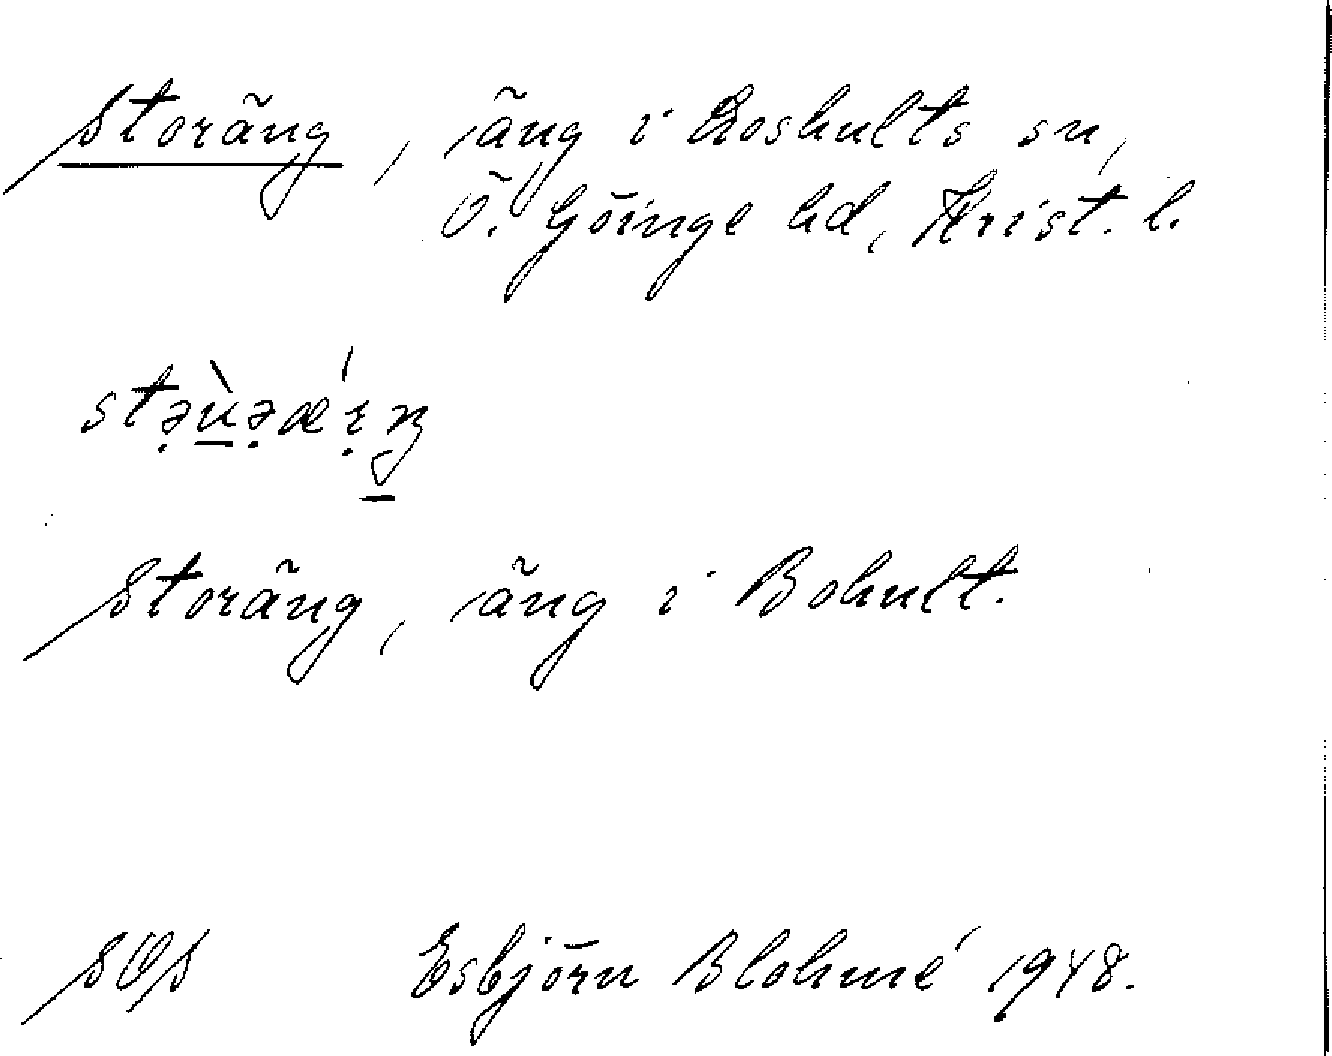 Storäng, äng i Loshults sn,
Ö. Göinge hd, Krist. l.
Storäng, äng i Bohult.
SOS Esbjörn Blohmé 1948.